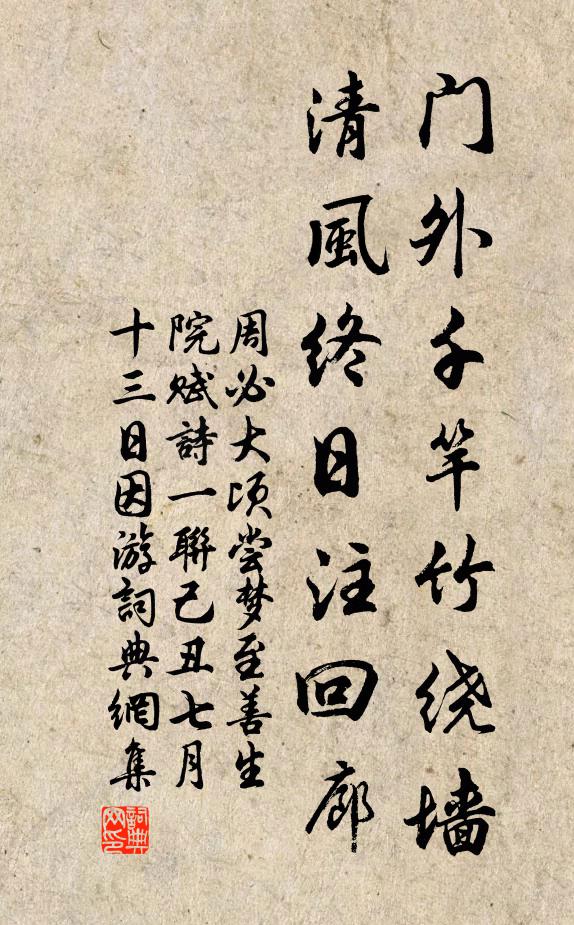 门外千竿竹绕墙
清風终日注回廊
周必大顷尝梦至善生
院赋詩一聯己丑七月
十三日因游詞典網集
詞典网印